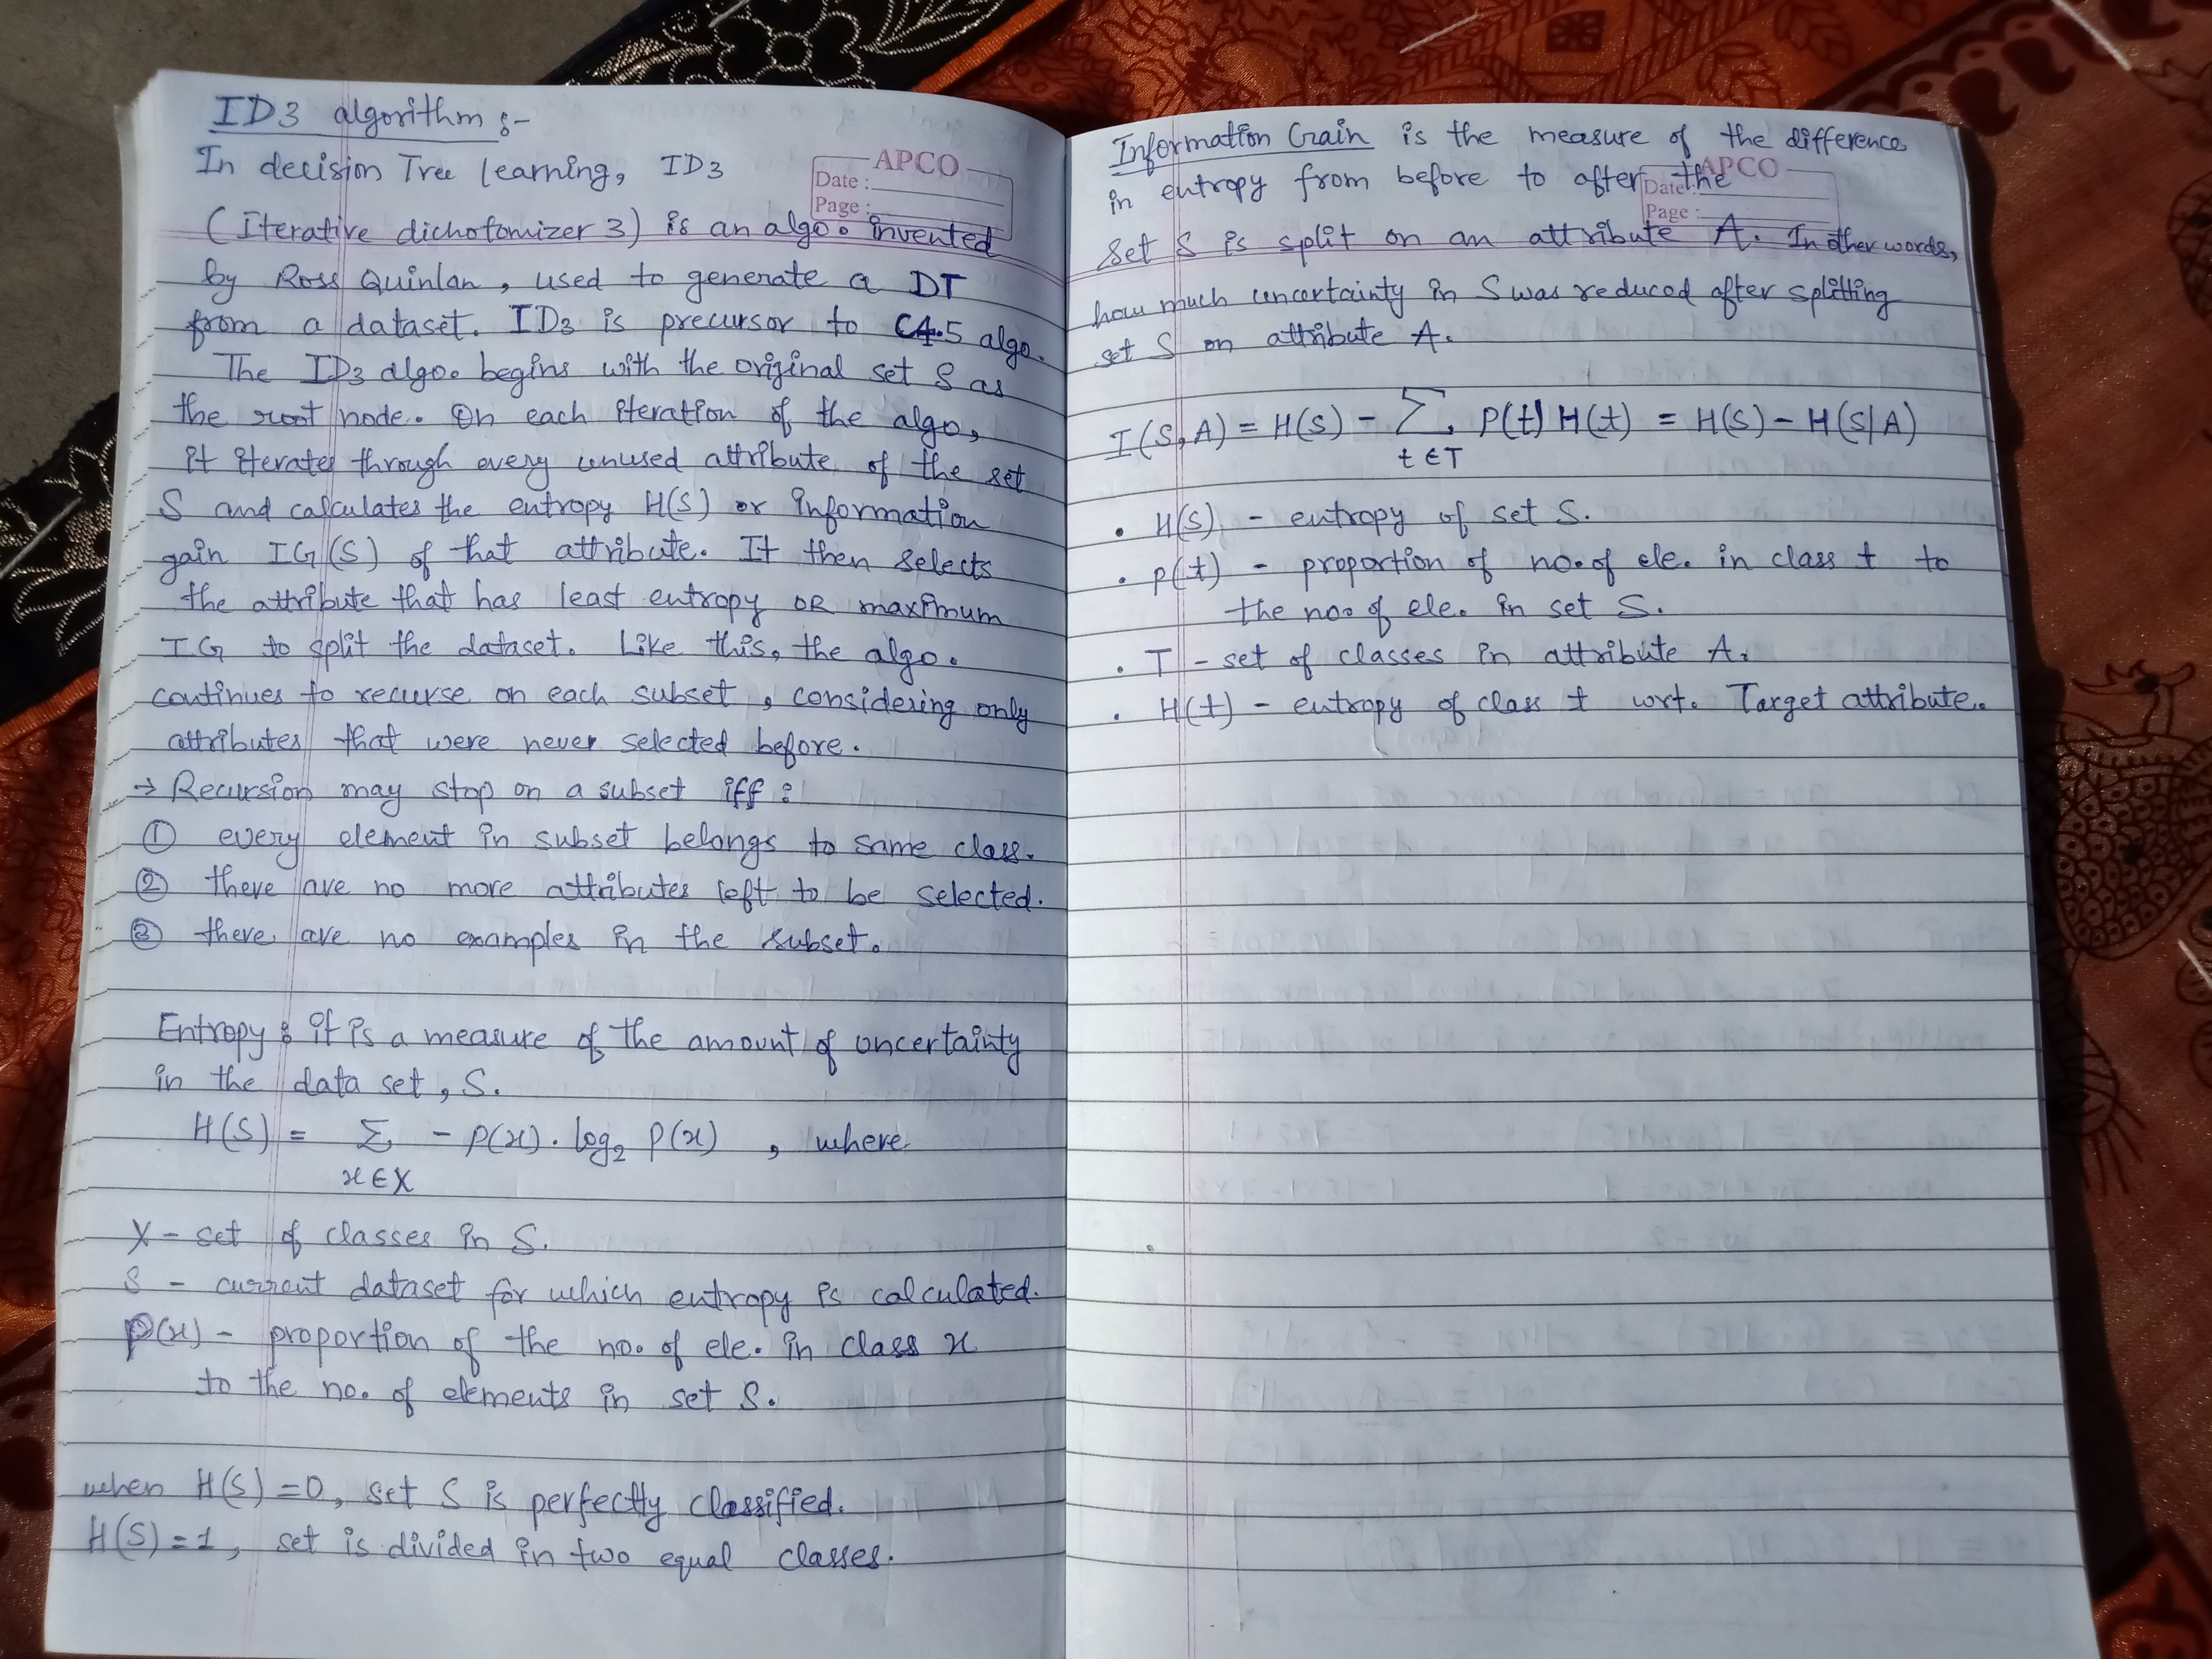 ID3 algorithm :-
In decision Tree learning, ID3
APCO
Date :
Page :
(Iterative dichotomizer 3) is an algo. invented
by Ross Quinlan, used to generate a DT
from a dataset. ID3 is precursor to C4.5 algo.
The ID3 algo. begins with the original set S as
the root node. On each iteration of the algo,
it iterates through every unused attribute of the set
S and calculates the entropy H(S) or Information
gain IG(S) of that attribute. It then selects
the attribute that has least entropy OR maximum
IG to split the dataset. Like this, the algo.
continues to recurse on each subset, considering only
attributes that were never selected before.
→ Recursion may stop on a subset iff :
① every element in subset belongs to same class.
② there are no more attributes left to be selected.
③ there are no examples in the subset.
Entropy : it is a measure of the amount of uncertainty
in the data set, S.
H(S) = Σ - P(x). log₂ P(x) , where
x ∈ X
X - set of classes in S.
S - current dataset for which entropy is calculated.
P(x) - proportion of the no. of ele. in class x
to the no. of elements in set S.
when H(S) = 0, set S is perfectly classified.
H(S) = 1, set is divided in two equal classes.
Information Gain is the measure of the difference
in entropy from before to after the
APCO
Date :
Page :
Set S is split on an attribute A. In other words,
how much uncertainty in S was reduced after splitting
set S on attribute A.
I(S,A) = H(S) - Σ P(t) H(t) = H(S) - H(S|A)
t ∈ T
• H(S) - entropy of set S.
• P(t) - proportion of no. of ele. in class t to
the no. of ele. in set S.
• T - set of classes in attribute A.
• H(t) - entropy of class t wrt. Target attribute.